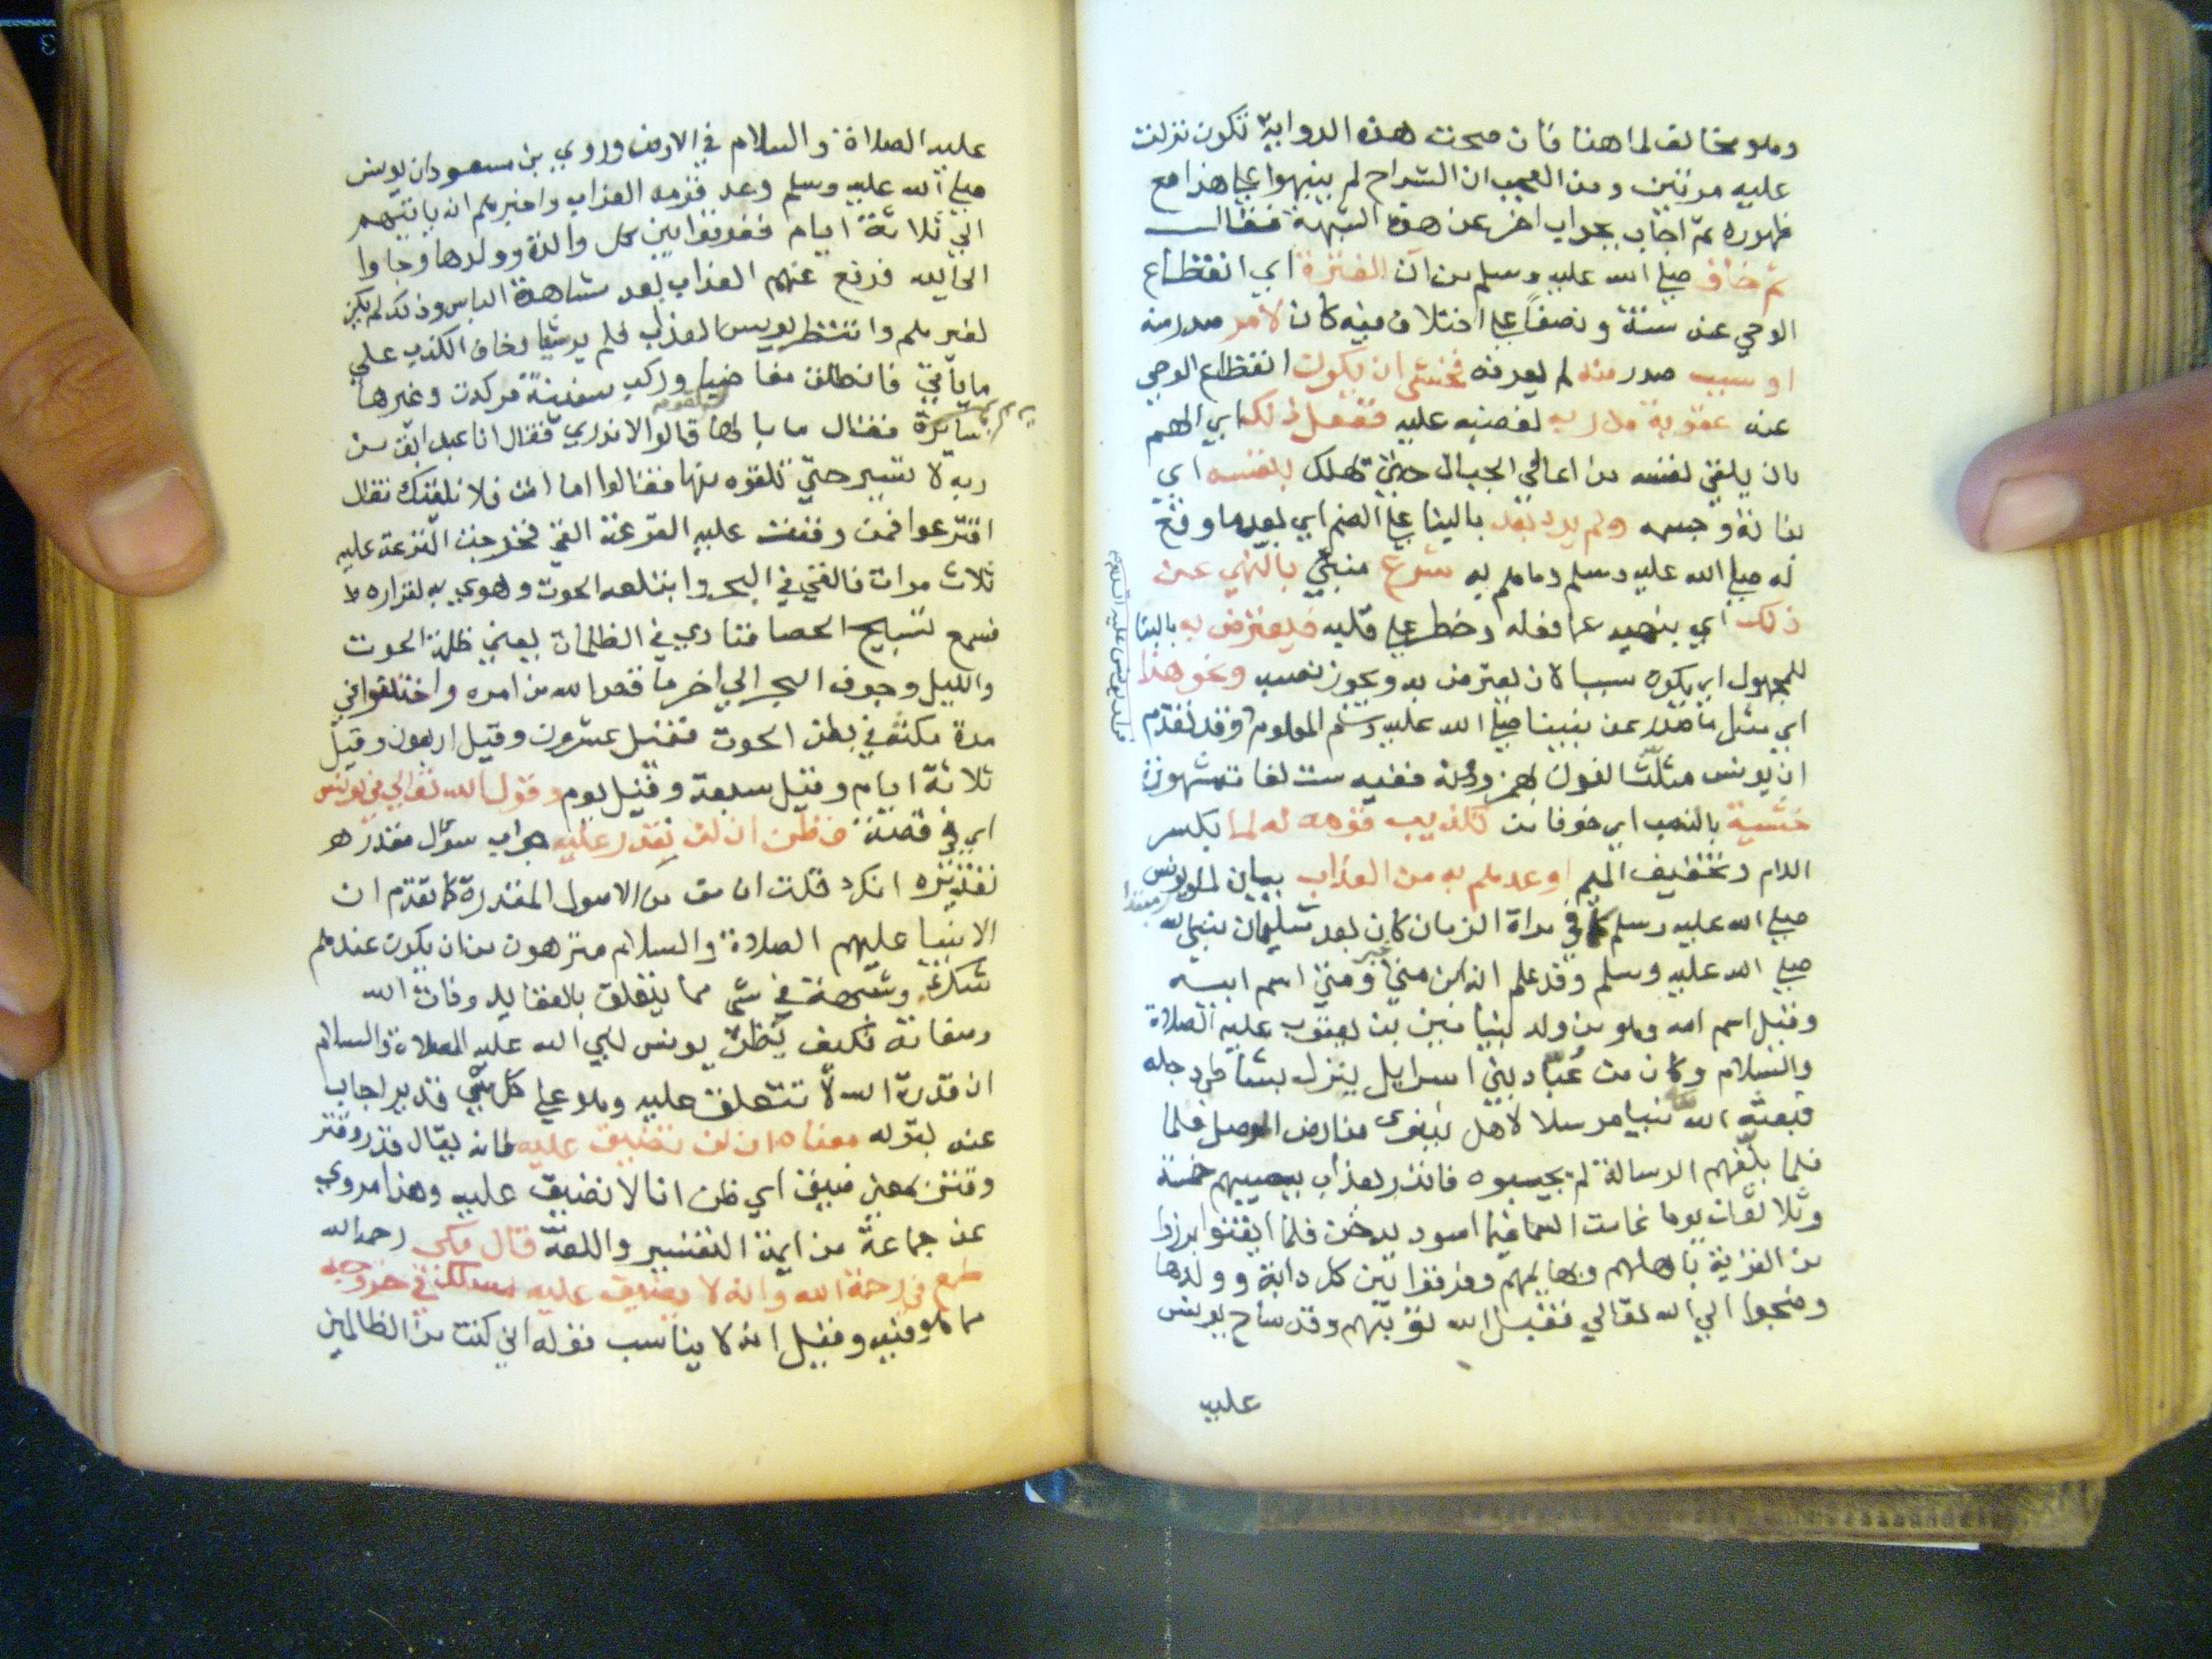 وهو مخالف لما هنا فان صحت هذه الرواية تكون نزلت
عليه مرتين ومن العجب ان الشراح لم ينبهوا على هذا مع
ظهوره ثم اجاب بجواب اخر عن هذه الشبهة فقال
ثم خاف صلى الله عليه وسلم من ان الفترة اي انقطاع
الوحي عنه سنة ونصفا على اختلاف فيه كان لامر صدر منه
او سبب صدر منه لم يعرفه فخشى ان يكون انقطاع الوحي
عنه عقوبة من ربه لغضبه عليه ففعل ذلك اي الهم
بان يلقي نفسه من اعالي الجبال حتى تهلك بنفسه اي
بذاته وجسمه ولم يرد بعد بالبنا على الضم اي بعد ما وقع
له صلى الله عليه وسلم وما هم به شرع منبئ بالنهي عن
ذلك اي ينهيه عما فعله وخطر على قلبه فيعترض به بالبنا
للمجهول اي يكون سببا لان يعترض به ويجوز نصبه ونحو هذا
اي مثل ما صدر عن نبينا صلى الله عليه وسلم المعلوم وقد تقدم
ان يونس مثلث النون بهمز ودونه ففيه ست لغات مشهورة
خشية بالنصب اي خوفا من تكذيب قومه له لما بكسر
اللام وتخفيف الميم اوعدهم به من العذاب بيان لما ويونس
صلى الله عليه وسلم كما في مراة الزمان كان بعد سليمان نبي الله
صلى الله عليه وسلم وقد علم انه ابن متى ومتى اسم ابيه
وقيل اسم امه وهو من ولد بنيامين بن يعقوب عليه الصلاة
والسلام وكان من عُبّاد بني اسرايل ينزل بشاطى دجله
فبعثه الله نبيا مرسلا لاهل نينوى من ارض الموصل فلما
فلما بلغهم الرسالة لم يجيبوه فانذر بعذاب يصيبهم خمسة
وثلاثون يوما غامت السما غيما اسود يدخن فلما ايقنوا برزوا
من القرية باهلهم وبهايمهم وفرقوا بين كل دابة وولدها
وضجوا الى الله تعالى فقبل الله توبتهم وقد ساح يونس
عليه
عليه الصلاة والسلام في الارض وروي بن مسعود ان يونس
صلى الله عليه وسلم وعد قومه العذاب واخبرهم انه ياتيهم
الى ثلاثة ايام ففرقوا بين كل والدة وولدها وجاوا
الى الله فرفع عنهم العذاب بعد مشاهدة الباس وذلك لم يكن
لغيرهم وانتظر يونس العذاب فلم ير شيا وخاف الكذب على
ما ياتي فانطلق مغاضبا وركب سفينة فركدت وغيرها
سايرة فقال ما بالها قالوا لا ندري فقال انا عبد ابق من
ربه لا تسير حتى تلقوه منها فقالوا اما انت فلا نلقيك فقال
اقترعوا فمن وقعت عليه القرعة القي فخرجت القرعة عليه
ثلاث مرات فالقي في البحر وابتلعه الحوت وهوى به لقراره
فسمع تسبيح الحصا فنادى في الظلمات يعني ظلمة الحوت
والليل وجوف البحر الى اخر ما قص الله من امره واختلفوا في
مدة مكثه في بطن الحوت فقيل عشرون وقيل اربعون وقيل
ثلاثة ايام وقيل سبعة وقيل يوم وقول الله تعالى في يونس
اي في قصته فظن ان لن نقدر عليه جواب سوال مقدر هو
تقديره انك قلت ان من الاصول المقدرة كما تقدم ان
الانبيا عليهم الصلاة والسلام منزهون من ان يكون عندهم
شك وشبهة في شي مما يتعلق بالعقايد وذات الله
وصفاته فكيف يظن يونس نبي الله عليه الصلاة والسلام
ان قدرة الله لا تتعلق عليه وهو على كل شي قدير اجاب
عنه بقوله معناه ان لن نضيق عليه فانه يقال قدر وقتر
وقتر بمعنى ضيق اي ظن انا لا نضيق عليه وهذا مروي
عن جماعة من ايمة التفسير واللغة قال مكى رحمه الله
طمع في رحمة الله وانه لا يضيق عليه مسلكه في خروجه
مما هو فيه وقيل انه لا يناسب قوله اني كنت من الظالمين